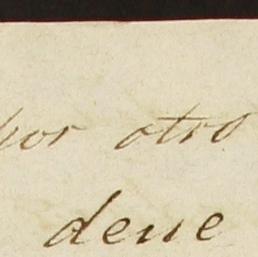 por otro
deve